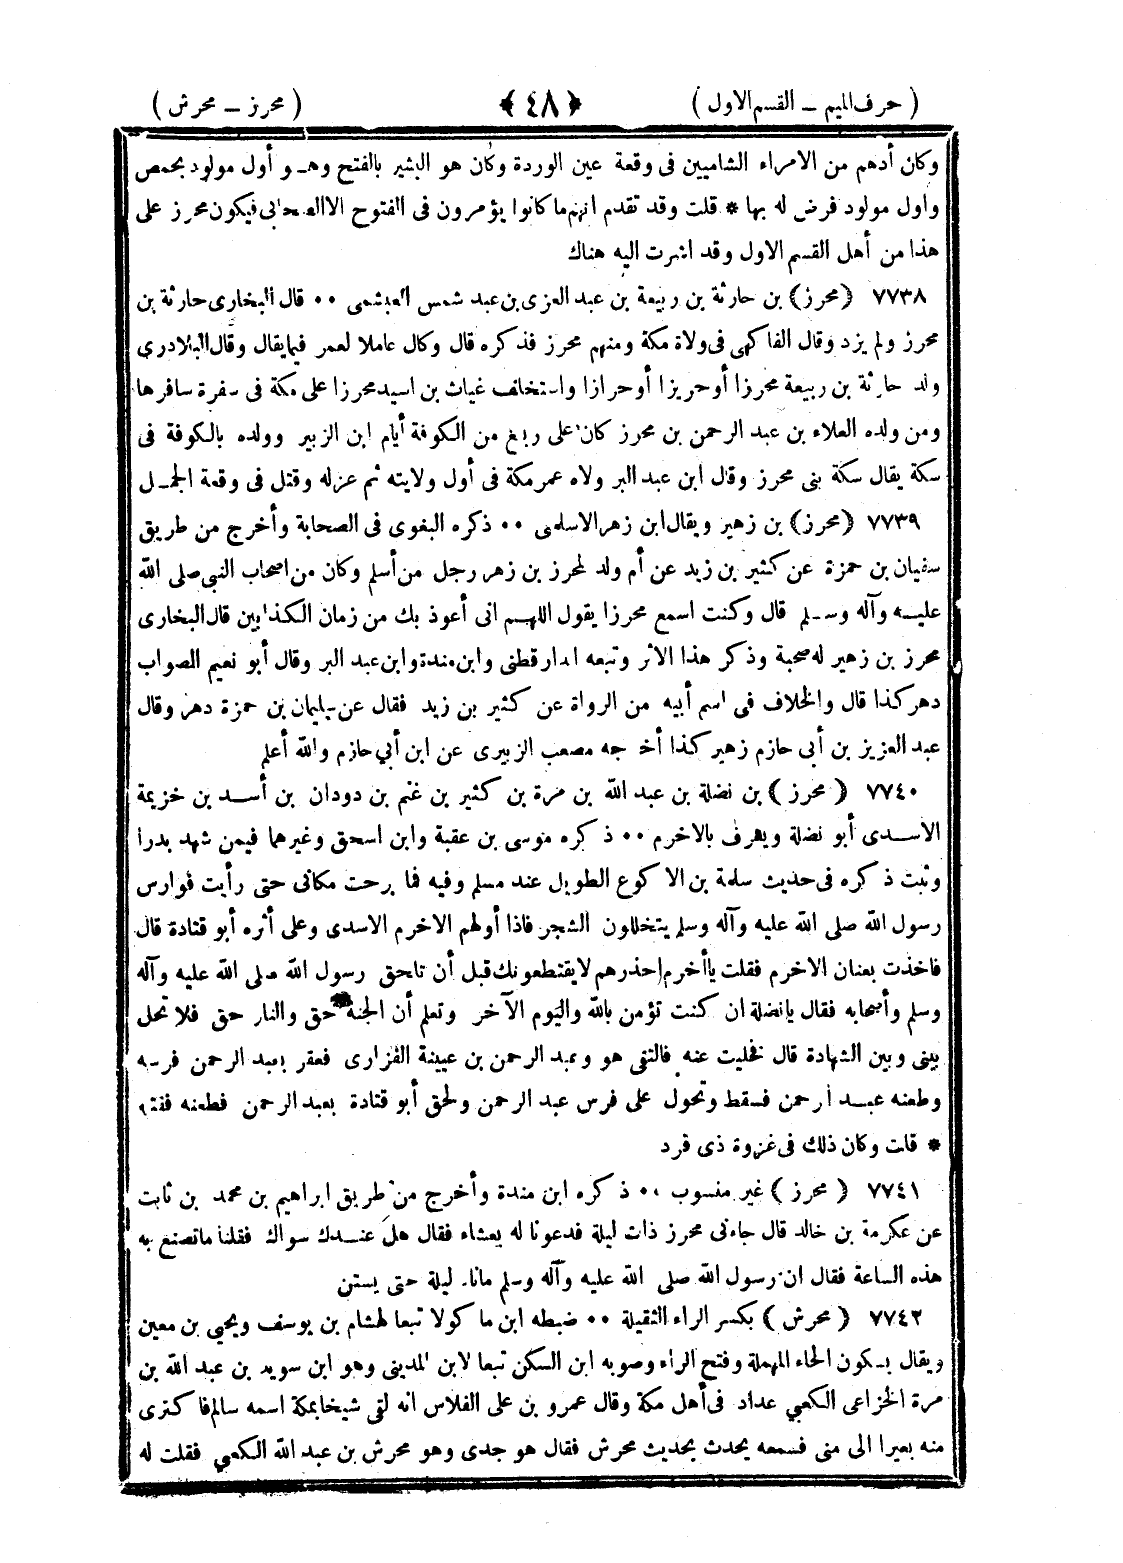 ( حرف الميم ــ القسم الاول )
﴿ ٤٨ ﴾
( محرز ــ محرش )
وكان أدهم من الامراء الشاميين فى وقعة عين الوردة وكان هو البشير بالفتح وهـو أول مولود بحمص
وأول مولود فرض له بها * قلت وقد تقدم انهم ما كانوا يؤمرون فى الفتوح الا الصحابى فيكون محرز على
هذا من أهل القسم الاول وقد اشرت اليه هناك
٧٧٣٨ ﴿محرز﴾ بن حارثة بن ربيعة بن عبد العزى بن عبد شمس العبشمى ٠٠ قال البخارى حارثة بن
محرز ولم يزد وقال الفاكهى فى ولاة مكة ومنهم محرز فذكره قال وكان عاملا لعمر فيما يقال وقال البلاذرى
ولد حارثة بن ربيعة محرزا أو حريزا أو حرازا واستخلف غياث بن اسيد محرزا على مكة فى سفرة سافرها
ومن ولده العلاء بن عبد الرحمن بن محرز كان على ربع من الكوفة أيام ابن الزبير وولده بالكوفة فى
سكة يقال سكة بنى محرز وقال ابن عبد البر ولاه عمر مكة فى أول ولايته ثم عزله وقتل فى وقعة الجمـل
٧٧٣٩ ﴿محرز﴾ بن زهير ويقال ابن زهر الاسلمى ٠٠ ذكره البغوى فى الصحابة وأخرج من طريق
سفيان بن حمزة عن كثير بن زيد عن أم ولد لمحرز بن زهر رجل من أسلم وكان من اصحاب النبى صلى الله
عليـه وآله وسـلم قال وكنت اسمع محرزا يقول اللهـم انى أعوذ بك من زمان الكذابين قال البخارى
محرز بن زهير له صحبة وذكر هذا الاثر وتبعه الدارقطنى وابن مندة وابن عبد البر وقال أبو نعيم الصواب
دهر كذا قال والخلاف فى اسم أبيه من الرواة عن كثير بن زيد فقال عن سليمان بن حمزة دهر وقال
عبد العزيز بن أبى حازم زهير كذا أخرجه مصعب الزبيرى عن ابن أبي حازم والله أعلم
٧٧٤٠ ﴿ محرز ﴾ بن نضلة بن عبد الله بن مرة بن كثير بن غنم بن دودان بن أسـد بن خزيمة
الاسـدى أبو نضلة ويعرف بالاخرم ٠٠ ذكره موسى بن عقبة وابن اسحق وغيرهما فيمن شهد بدرا
وثبت ذكره فى حديث سلمة بن الاكوع الطويل عند مسلم وفيه فما برحت مكانى حتى رأيت فوارس
رسول الله صلى الله عليه وآله وسلم يتخللون الشجر فاذا أولهم الاخرم الاسدى وعلى أثره أبو قتادة قال
فاخذت بعنان الاخرم فقلت يا أخرم احذرهم لا يقتطعونك قبل أن تلحق رسول الله صلى الله عليه وآله
وسلم وأصحابه فقال يا نضلة ان كنت تؤمن بالله واليوم الآخر وتعلم أن الجنة حق والنار حق فلا تحل
بينى وبين الشهادة قال فخليت عنه فالتقى هو وعبد الرحمن بن عيينة الفزارى فعقر بعبد الرحمن فرسه
وطعنه عبـد الرحمن فسقط وتحول على فرس عبد الرحمن ولحق أبو قتادة بعبد الرحمن فطعنه فقتله
* قلت وكان ذلك فى غزوة ذى قرد
٧٧٤١ ﴿ محرز ﴾ غير منسوب ٠٠ ذكره ابن مندة وأخرج من طريق ابراهيم بن محمد بن ثابت
عن عكرمة بن خالد قال جاءنى محرز ذات ليلة فدعونا له بعشاء فقال هل عنـدك سواك فقلنا ما تصنع به
هذه الساعة فقال ان رسول الله صلى الله عليه وآله وسلم ما نام ليلة حتى يستن
٧٧٤٢ ﴿ محرش ﴾ بكسر الراء الثقيلة ٠٠ ضبطه ابن ماكولا تبعا لهشام بن يوسف ويحيى بن معين
ويقال بسكون الحاء المهملة وفتح الراء وصوبه ابن السكن تبعا لابن المدينى وهو ابن سويد بن عبد الله بن
مرة الخزاعى الكعبي عداده فى أهل مكة وقال عمرو بن على الفلاس انه لقى شيخا بمكة اسمه سالم فاكترى
منه بعيرا الى منى فسمعه يحدث بحديث محرش فقال هو جدى وهو محرش بن عبد الله الكعبي فقلت له